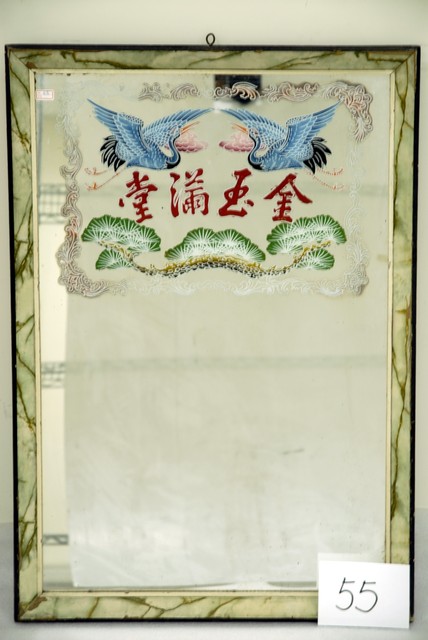 金玉滿堂
55